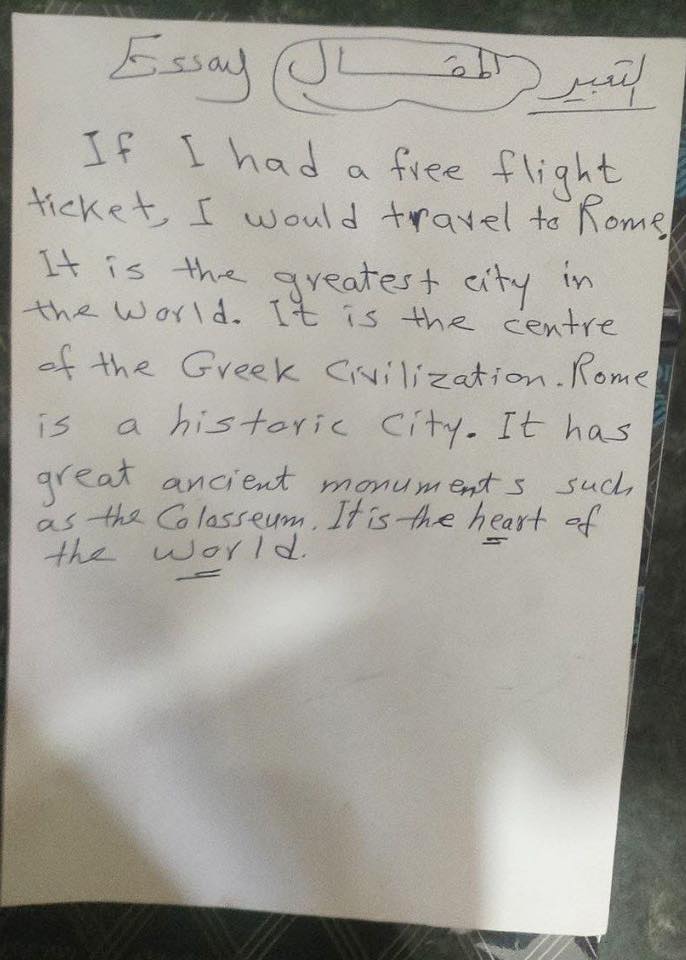 Essay المقال التعبير
If I had a free flight
ticket, I would travel to Rome.
It is the greatest city in
the world. It is the centre
of the Greek Civilization. Rome
is a historic city. It has
great ancient monuments such
as the Colosseum. It is the heart of
the world.